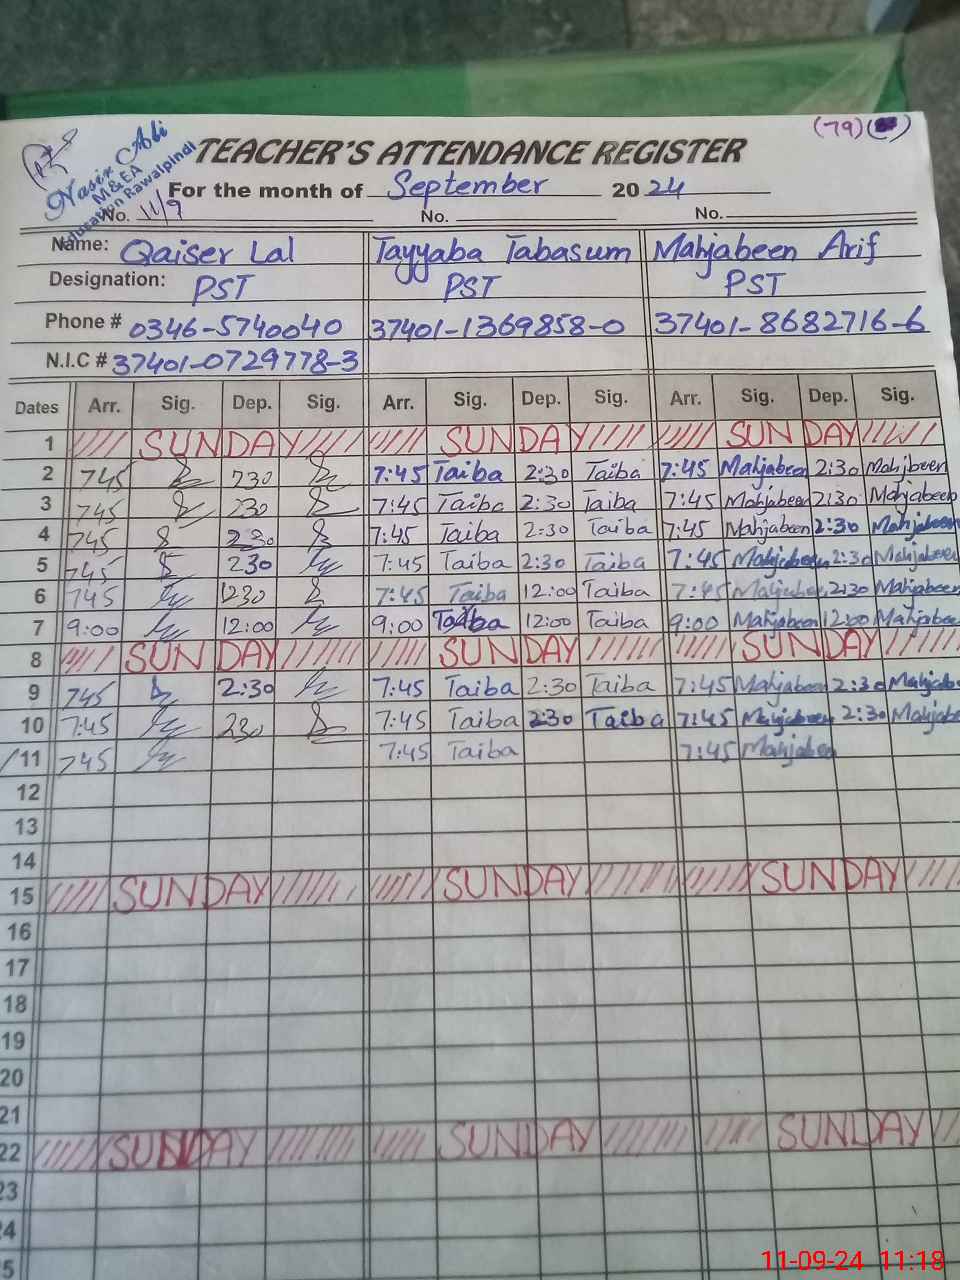 (79)
Nasir Ali
M&EA
Education Rawalpindi
TEACHER'S ATTENDANCE REGISTER
For the month of September 2024
No. 11/9 No. No.
Name: Qaiser Lal Tayyaba Tabasum Mahjabeen Arif
Designation: PST PST PST
Phone # 0346-5740040 37401-1369858-0 37401-8682716-6
N.I.C # 37401-0729778-3
Dates Arr. Sig. Dep. Sig. Arr. Sig. Dep. Sig. Arr. Sig. Dep. Sig.
1 SUNDAY SUNDAY SUNDAY
2 745 230 7:45 Taiba 2:30 Taiba 7:45 Mahjabeen 2:30 Mahjbeen
3 745 230 7:45 Taiba 2:30 Taiba 7:45 Mahjabeen 2:30 Mahjabeen
4 745 230 7:45 Taiba 2:30 Taiba 7:45 Mahjabeen 2:30 Mahjabeen
5 745 230 7:45 Taiba 2:30 Taiba 7:45 Mahjabeen 2:30 Mahjabeen
6 745 1230 7:45 Taiba 12:00 Taiba 7:45 2:30 Mahjabeen
7 9:00 12:00 9:00 Taiba 12:00 Taiba 9:00 Mahjabeen 12:00 Mahjabee
8 SUNDAY SUNDAY SUNDAY
9 745 2:30 7:45 Taiba 2:30 Taiba 7:45 Mahjabeen 2:30 Mahjabe
10 7:45 230 7:45 Taiba 230 Taiba 7:45 Mahjabeen 2:30 Mahjabe
11 745 7:45 Taiba 7:45 Mahjabeen
12
13
14
15 SUNDAY SUNDAY SUNDAY
16
17
18
19
20
21
22 SUNDAY SUNDAY SUNDAY
23
4
5
11-09-24 11:18